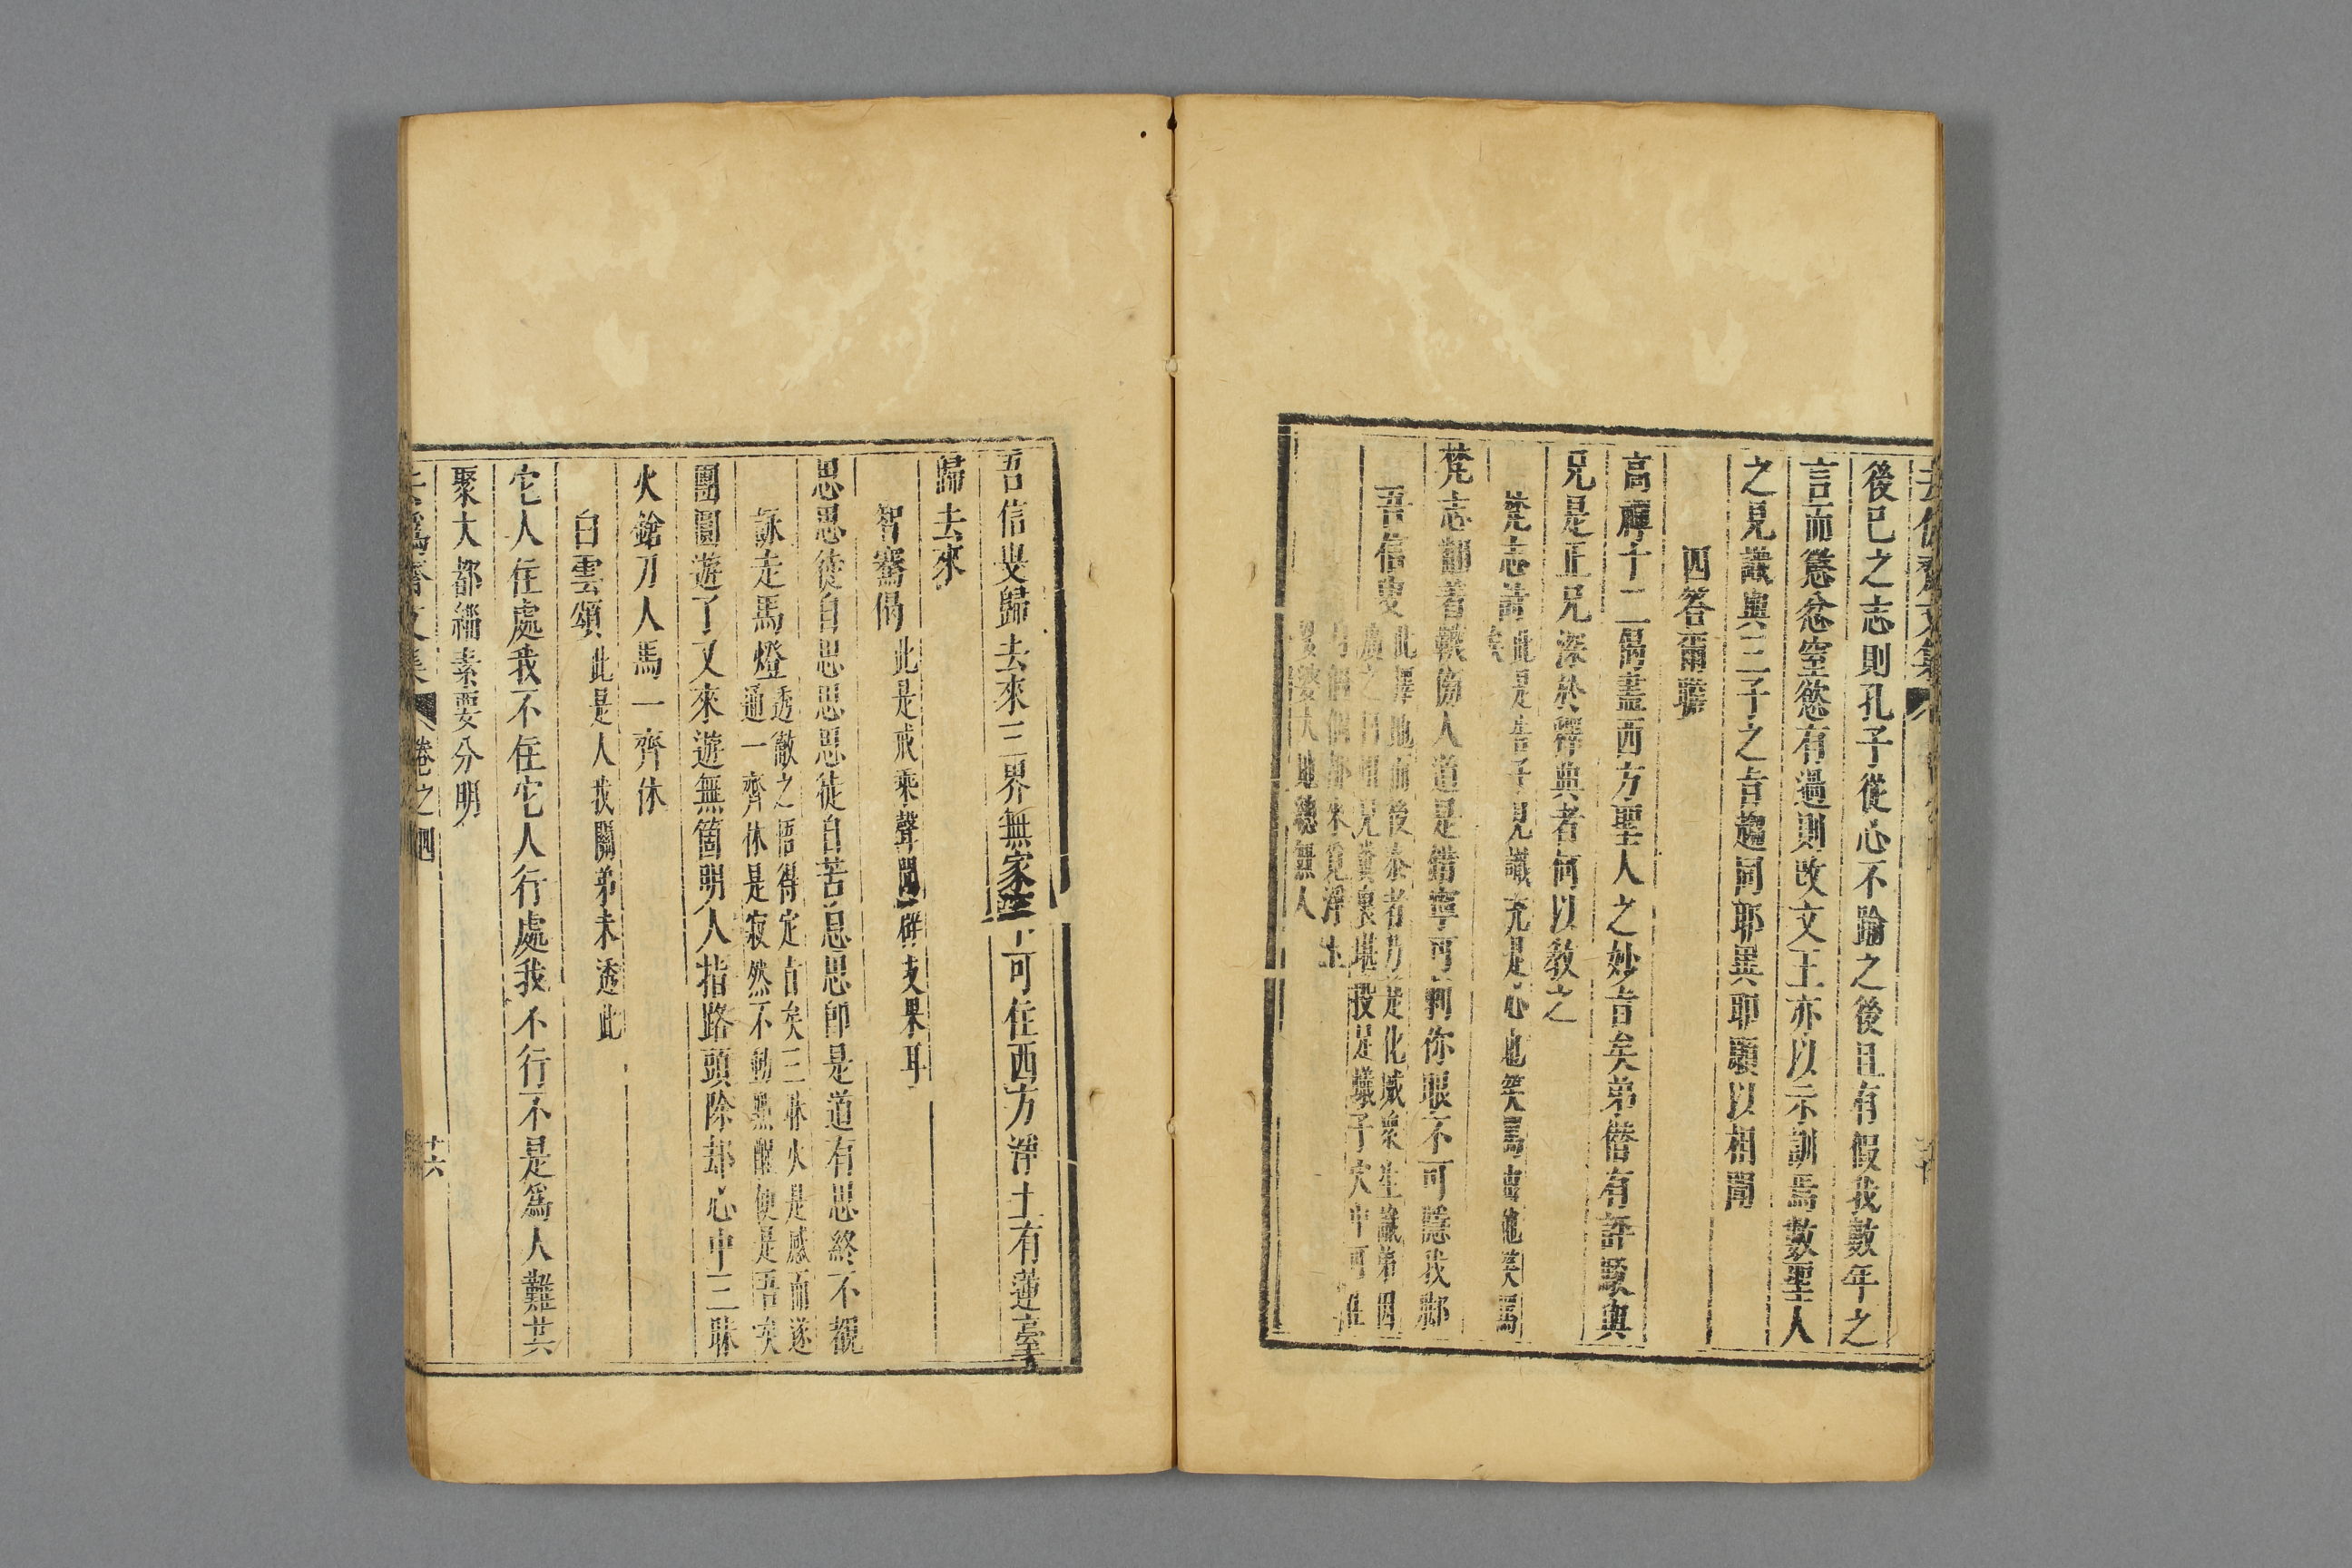 後已之志則孔子從心不踰之後且有假我數年之
言而懲忿窒慾有過則改文王亦以示訓焉數聖人
之見識與三子之言趨同耶異耶願以相聞
四答爾瞻
高禪十二偈盡西方聖人之妙旨矣弟僭有評駁與
兄是正兄深於釋典者何以教之
梵志詩此是告子見識充是心也笑罵由他笑罵
矣
梵志翻着韈傍人道是錯寧可刺你眼不可隱我脚
吾信叟
此擇地而後泰者乃是化威衆生議弟因
爲之
穴中可
大地總無人
吾信叟歸去來三界無家可住西方淨土有蓮臺
歸去來
智騫偈此是戒乘聲聞辟支果耳
思思徒自思思思徒自苦息思即是道有思終不觀
詠走馬燈透徹之悟得定旨矣三昧火是感而遂
通一齊休是寂然不動無醒便是吾矣
團圞遊了又來遊無箇明人指路頭除却心中三昧
火鎗刀人馬一齊休
白雲頌此是人我關弟未透此
它人住處我不住它人行處我不行不是爲人難共
聚大都緇素要分明
去僞齋文集 卷之四 十六